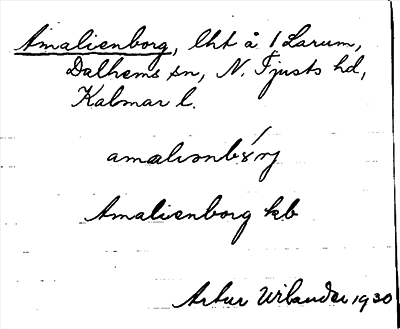 Amalienborg, lht å 1 Larum,
Dalhems sn, N. Tjusts hd,
Kalmar l.
Amalienborg kb
Artur 1930